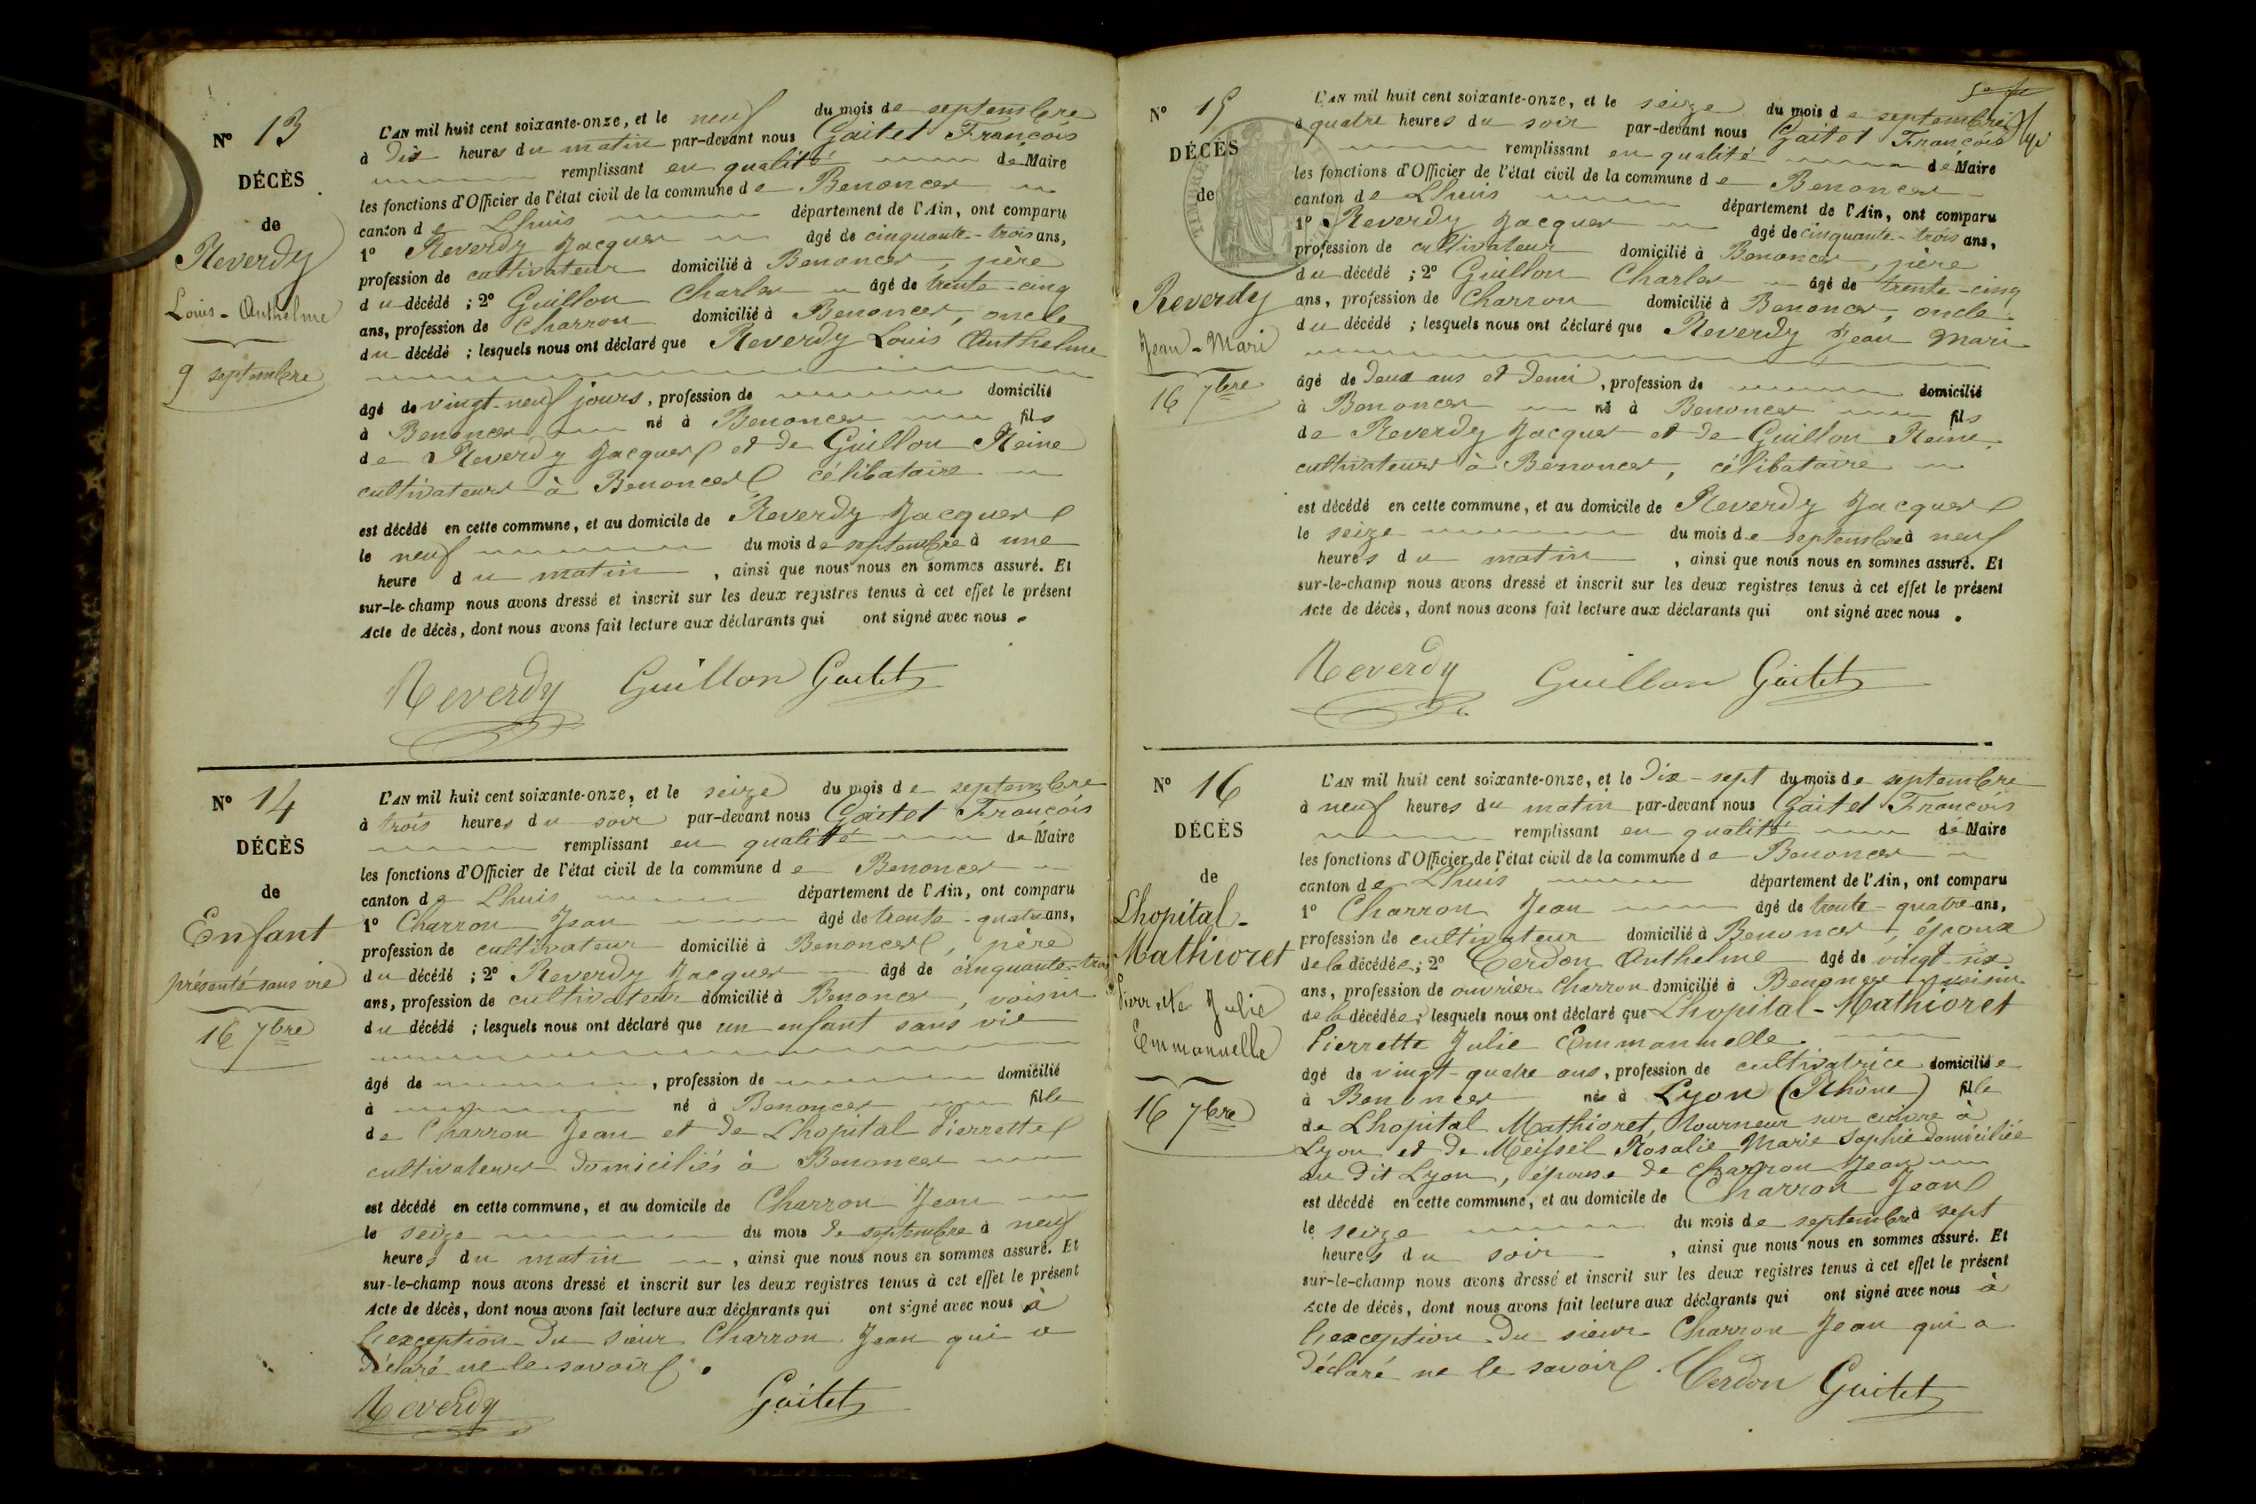 N° 13
DÉCÈS
de
Reverdy
Louis-Anthelme
9 septembre
L'AN mil huit cent soixante-onze, et le neuf du mois de septembre
à dix heures du matin par-devant nous Gaitet François
remplissant en qualité de Maire
les fonctions d'Officier de l'état civil de la commune de Benonces
canton de Lhuis département de l'Ain, ont comparu
1° Reverdy Jacques âgé de cinquante-trois ans,
profession de cultivateur domicilié à Benonces, père
du décédé ; 2° Guillon Charles âgé de trente-cinq
ans, profession de Charron domicilié à Benonces, oncle
du décédé ; lesquels nous ont déclaré que Reverdy Louis Anthelme
âgé de vingt-neuf jours, profession de domicilié
à Benonces né à Benonces fils
de Reverdy Jacques et de Guillon Reine
cultivateurs à Benonces célibataire
est décédé en cette commune, et au domicile de Reverdy Jacques
le neuf du mois de septembre à une
heure du matin, ainsi que nous nous en sommes assuré. Et
sur-le-champ nous avons dressé et inscrit sur les deux registres tenus à cet effet le présent
Acte de décès, dont nous avons fait lecture aux déclarants qui ont signé avec nous.
Reverdy Guillon Gaitet
N° 14
DÉCÈS
de
Enfant
présenté sans vie
16 7bre
L'AN mil huit cent soixante-onze, et le seize du mois de septembre
à trois heures du soir par-devant nous Gaitet François
remplissant en qualité de Maire
les fonctions d'Officier de l'état civil de la commune de Benonces
canton de Lhuis département de l'Ain, ont comparu
1° Charron Jean âgé de trente-quatre ans,
profession de cultivateur domicilié à Benonces, père
du décédé ; 2° Reverdy Jacques âgé de cinquante-trois
ans, profession de cultivateur domicilié à Benonces, voisin
du décédé ; lesquels nous ont déclaré que un enfant sans vie
âgé de , profession de domicilié
à né à Benonces fille
de Charron Jean et de Lhopital Pierrette
cultivateurs domiciliés à Benonces
est décédé en cette commune, et au domicile de Charron Jean
le seize du mois de septembre à neuf
heures du matin, ainsi que nous nous en sommes assuré. Et
sur-le-champ nous avons dressé et inscrit sur les deux registres tenus à cet effet le présent
Acte de décès, dont nous avons fait lecture aux déclarants qui ont signé avec nous à
l'exception du sieur Charron Jean qui a
déclaré ne le savoir.
Reverdy Gaitet
N° 15
DÉCÈS
de
Reverdy
Jean-Mari
16 7bre
L'AN mil huit cent soixante-onze, et le seize du mois de septembre
à quatre heures du soir par-devant nous Gaitet François
remplissant en qualité de Maire
les fonctions d'Officier de l'état civil de la commune de Benonces
canton de Lhuis département de l'Ain, ont comparu
1° Reverdy Jacques âgé de cinquante-trois ans,
profession de cultivateur domicilié à Benonces, père
du décédé ; 2° Guillon Charles âgé de trente-cinq
ans, profession de Charron domicilié à Benonces, oncle
du décédé ; lesquels nous ont déclaré que Reverdy Jean Mari
âgé de deux ans et demi, profession de domicilié
à Benonces né à Benonces fils
de Reverdy Jacques et de Guillon Reine
cultivateurs à Benonces, célibataire
est décédé en cette commune, et au domicile de Reverdy Jacques
le seize du mois de septembre à neuf
heures du matin, ainsi que nous nous en sommes assuré. Et
sur-le-champ nous avons dressé et inscrit sur les deux registres tenus à cet effet le présent
Acte de décès, dont nous avons fait lecture aux déclarants qui ont signé avec nous.
Reverdy Guillon Gaitet
N° 16
DÉCÈS
de
Lhopital-
Mathioret
Pierrette Julie
Emmanuelle
16 7bre
L'AN mil huit cent soixante-onze, et le dix-sept du mois de septembre
à neuf heures du matin par-devant nous Gaitet François
remplissant en qualité de Maire
les fonctions d'Officier de l'état civil de la commune de Benonces
canton de Lhuis département de l'Ain, ont comparu
1° Charron Jean âgé de trente-quatre ans,
profession de cultivateur domicilié à Benonces, époux
de la décédée ; 2° Cerdon Anthelme âgé de vingt-six
ans, profession de ouvrier Charron domicilié à Benonces, voisin
de la décédée ; lesquels nous ont déclaré que Lhopital-Mathioret
Pierrette Julie Emmanuelle
âgé de vingt-quatre ans, profession de cultivatrice domiciliée
à Benonces née à Lyon (Rhône) fille
de Lhopital Mathioret, tourneur sur cuivre à
Lyon et de Meissel Rosalie Marie Sophie domiciliée
au dit Lyon, épouse de Charron Jean
est décédé en cette commune, et au domicile de Charron Jean
le seize du mois de septembre à sept
heures du soir, ainsi que nous nous en sommes assuré. Et
sur-le-champ nous avons dressé et inscrit sur les deux registres tenus à cet effet le présent
Acte de décès, dont nous avons fait lecture aux déclarants qui ont signé avec nous à
l'exception du sieur Charron Jean qui a
déclaré ne le savoir. Cerdon Gaitet